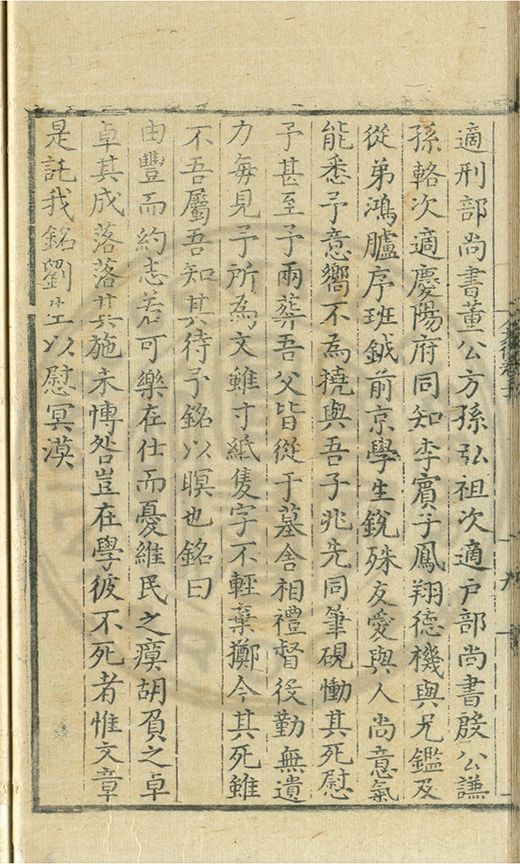 適刑部尚書董公方孫弘祖次適戶部尚書殷公謙
孫輅次適慶陽府同知李賓子鳳翔德機與兄鑑及
從弟鴻臚序班鉞前京學生銳殊友愛與人尚意氣
能悉予意嚮不為撓與吾子兆先同筆硯慟其死慰
予甚至予兩葬吾父皆從于墓舍相禮督役勤無遺
力每見予所為文雖寸紙隻字不輕棄擲今其死雖
不吾屬吾知其待予銘以瞑也銘曰
由豐而約志若可樂在仕而憂維民之瘼胡負之卓
卓其成落落其施未愽咎豈在學彼不死者惟文章
是託我銘劉生以慰冥漠